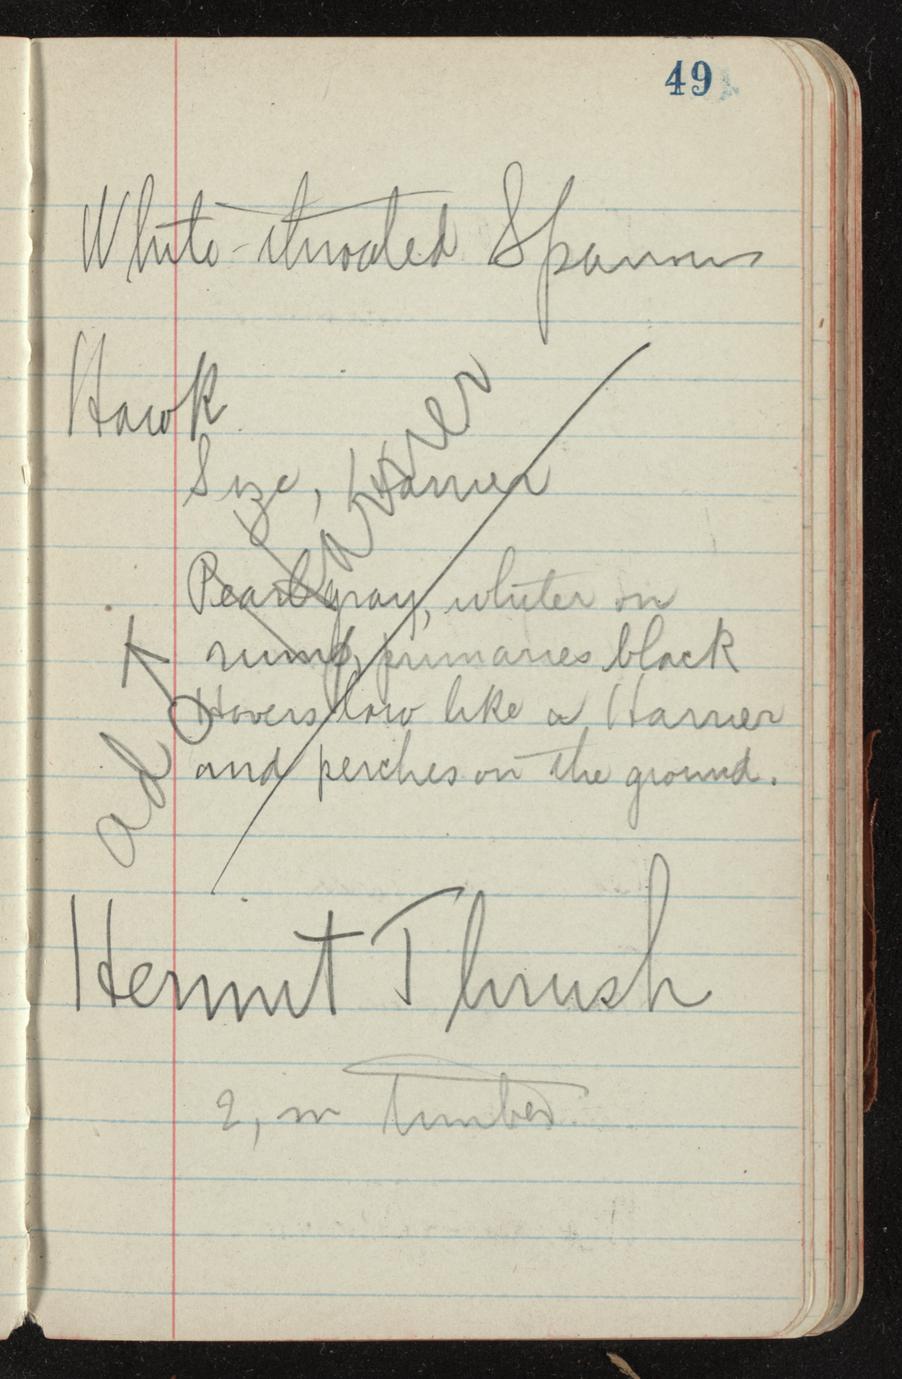 49
White-throated Sparrow
Hawk
Size, Harrier
Pearl gray, whiter on
rump, primaries black
Hovers low like a Harrier
and perches on the ground.
ad ♂ Harrier
Hermit Thrush
2, in timber.